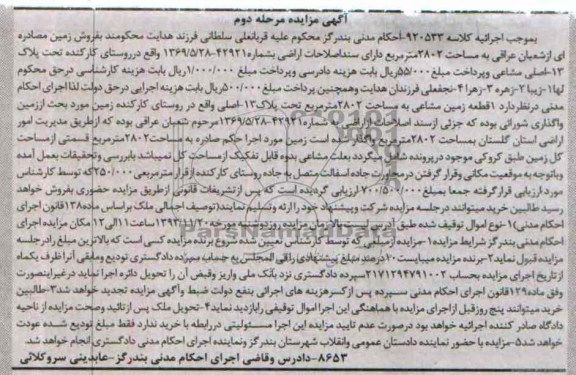 آگهی مزایده مرحله دوم
بموجب اجرائیه کلاسه ۹۲۰۵۳۳-احکام مدنی بندرگز محکوم علیه قربانعلی سلطانی فرزند هدایت محکومند بفروش زمین مصادره
ای ازشعبان عراقی به مساحت ۲۸۰۲مترمربع دارای سنداصلاحات اراضی بشماره۴۲۹۲۱-۱۳۶۹/۵/۲۸ واقع درروستای کارکنده تحت پلاک
۱۳-اصلی مشاعی وپرداخت مبلغ ۵۵/۰۰۰ریال بابت هزینه دادرسی وپرداخت مبلغ ۱/۰۰۰/۰۰۰ریال بابت هزینه کارشناسی درحق محکوم
لها۱-زیبا ۲-زهره ۳-زهرا ۴-نجفعلی فرزندان هدایت وهمچنین پرداخت مبلغ ۵۰۰/۰۰۰ریال بابت هزینه اجرایی درحق دولت لذااجرای احکام
مدنی درنظردارد ۱قطعه زمین مشاعی به مساحت ۲۸۰۲مترمربع تحت پلاک۱۳-اصلی واقع در روستای کارکنده زمین مورد بحث اززمین
واگذاری شورائی بوده که جزئی ازسند اصلاحات اراضی شماره۴۲۹۳۱-۱۳۶۹/۵/۲۸مرحوم شعبان عراقی بوده که ازطریق مدیریت امور
اراضی استان گلستان بمساحت ۲۸۰۲مترمربع واگذارشده است زمین مورد اجرا حکم صادره به مساحت۲۸۰۲مترمربع قسمتی ازمساحت
کل زمین طبق کروکی موجود درپرونده شامل میگردد بعلت مشاعی بدوه قابل تفکیک ازمساحت کل نمیباشد بابررسی وتحقیقات بعمل آمده
وباتوجه به موقعیت مکانی وقرار گرفتن درمجاورت جاده اسفالت متصل به جاده روستای کارکنده ازقرار مترمربعی۲۵۰/۰۰۰که توسط کارشناس
مورد ارزیابی قرارگرفته جمعا بمبلغ ۷۰۰/۵۰۰/۰۰۰ارزیابی گردیده است که پس ازتشریفات قانونی ازطریق مزایده حضوری بفروش خواهد
رسید طالبین خرید میتوانند درجلسه مزایده شرکت وپیشنهاد خود را ارئه وتسلیم نمایند(توصیف اجمالی ملک براساس ماده۱۳۸قانون اجرای
احکام مدنی)۱-نوع اموال توقیف شده طبق آورده شده بالا زمان مزایده روزدوشنبه مورخه۱۳۹۳/۱۱/۲۰ساعت ۱۱الی۱۲ مکان مزایده اجرای
احکام مدنی بندرگز شرایط مزایده۱-مزایده ازمبلغی که توسط کارشناس تعیین شده شروع برنده مزایده کسی است که بالاترین مبلغ رادرجلسه
مزایده قبول نماید۲-برنده مزایده میبایست۱۰درصد مبلغ پیشنهادی راقی المجلس به حساب سپرده دادگستری تودیع ومابقی آنرا ظرف یکماه
ازتاریخ اجرای مزایده بحساب ۲۱۷۱۲۹۴۷۹۱۰۰۲سپرده دادگستری نزد بانک ملی واریز وقبض آن را تحویل دائره اجرا نماید درغیراینصورت
وفق ماده۱۲۹قانون اجرای احکام مدنی سپرده پس ازکسرهزینه های اجرائی بنفع دولت ضبط وآگهی مزایده تجدید خواهد شد۳-طالبین
خرید میتوانند پنج روزقبل ازاجرای مزایده با هماهنگی این اجرا اموال توقیفی رابازدید نماید۴-تحویل ملک پس ازتائید وصحت مزایده از ناحیه
دادگاه صادر کننده اجرائیه خواهد بود درصورت عدم تایید مزایده این اجرا مسئولیتی دررابطه با خرید ندارد فقط مبلغ تودیع شده عودت
خواهد شد۵-مزایده با حضور نماینده دادستان عمومی وانقلاب شهرستان بندرگز ونماینده اجرای احکام مدنی دادگستری انجام خواهد شد.
۸۶۵۳-دادرس وقاضی اجرای احکام مدنی بندرگز-عابدینی سروکلائی